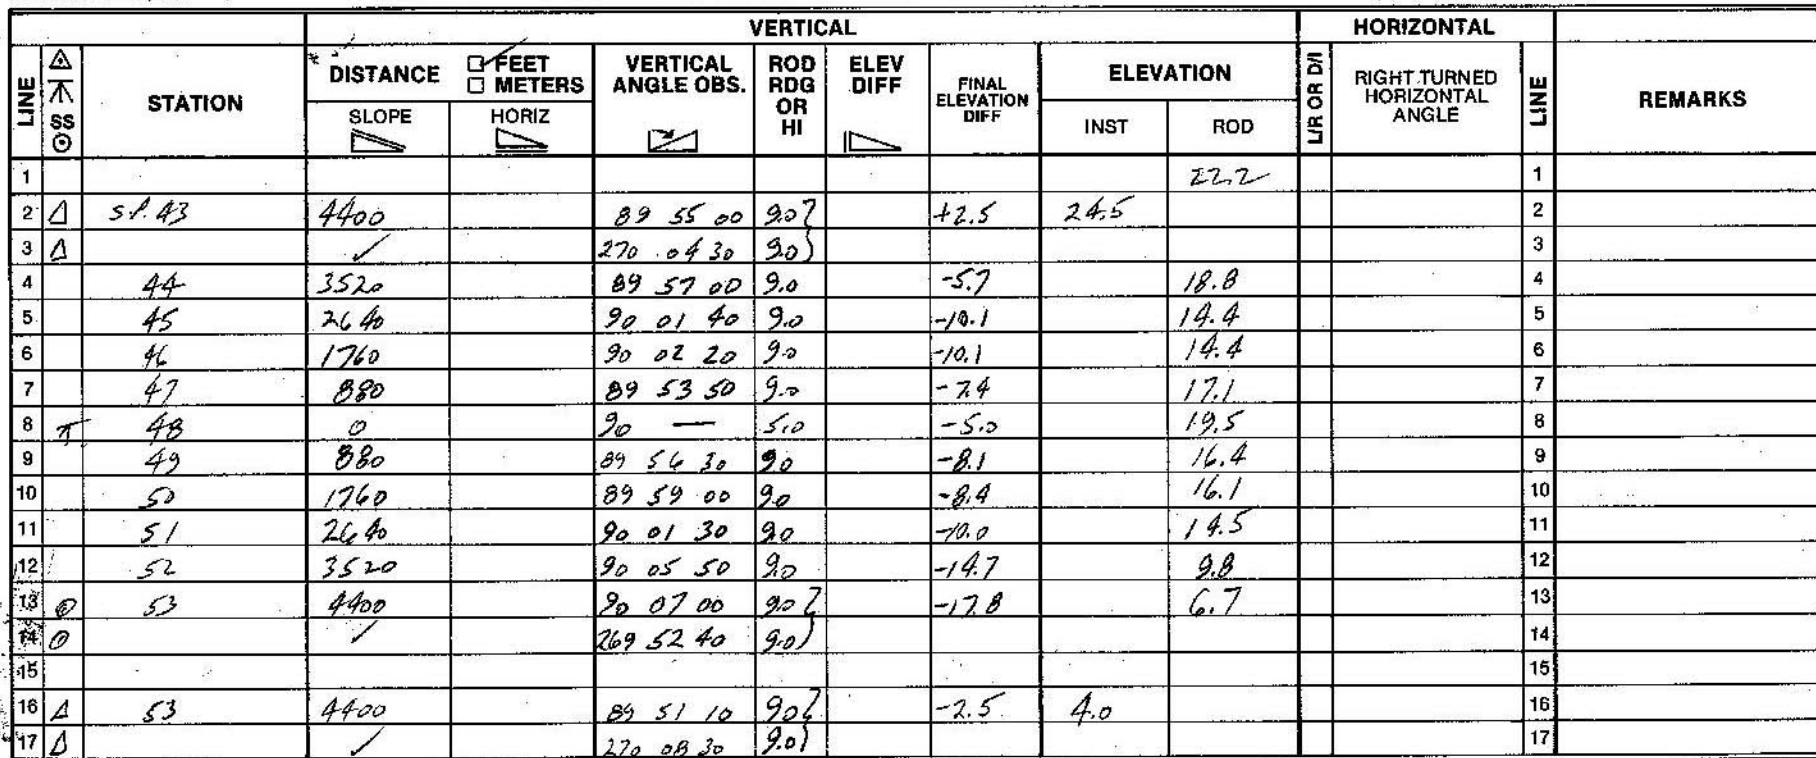 VERTICAL HORIZONTAL
LINE SS STATION DISTANCE FEET METERS VERTICAL ANGLE OBS. ROD RDG OR HI ELEV DIFF FINAL ELEVATION DIFF ELEVATION L/R OR D/I RIGHT TURNED HORIZONTAL ANGLE LINE REMARKS
SLOPE HORIZ INST ROD
1 22.2 1
2 Δ S.P. 43 4400 89 55 00 9.0 +2.5 24.5 2
3 Δ ✓ 270 04 30 9.0 3
4 44 3520 89 57 00 9.0 -5.7 18.8 4
5 45 2640 90 01 40 9.0 -10.1 14.4 5
6 46 1760 90 02 20 9.0 -10.1 14.4 6
7 47 880 89 53 50 9.0 -7.4 17.1 7
8 48 0 90 — 5.0 -5.0 19.5 8
9 49 880 89 56 30 9.0 -8.1 16.4 9
10 50 1760 89 59 00 9.0 -8.4 16.1 10
11 51 2640 90 01 30 9.0 -10.0 14.5 11
12 52 3520 90 05 50 9.0 -14.7 9.8 12
13 53 4400 90 07 00 9.0 -17.8 6.7 13
14 ✓ 269 52 40 9.0 14
15 15
16 Δ 53 4400 89 51 10 9.0 -2.5 4.0 16
17 Δ ✓ 270 08 30 9.0 17